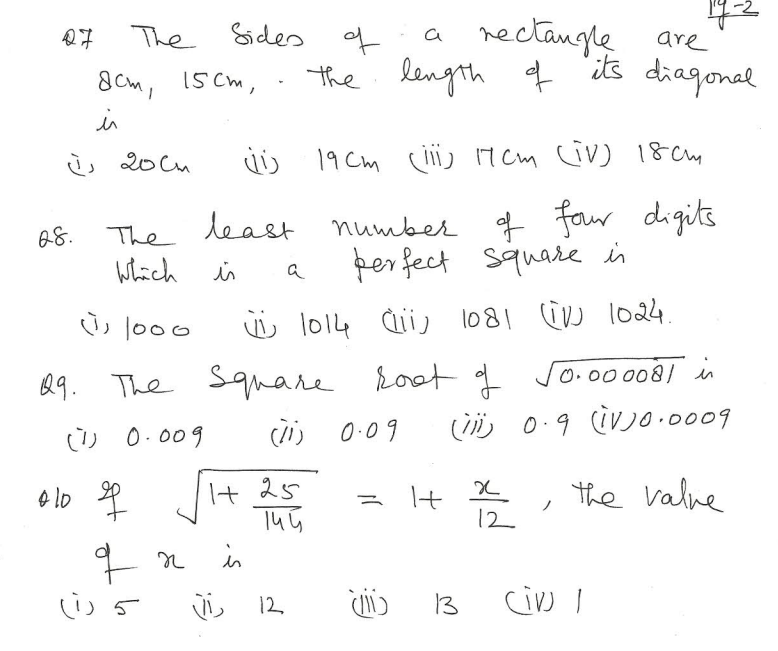 Pg-2
Q7 The Sides of a rectangle are
8cm, 15cm, . the length of its diagonal
is
(i) 20cm (ii) 19cm (iii) 17cm (iv) 18cm
Q8. The least number of four digits
which is a perfect square is
(i) 1000 (ii) 1014 (iii) 1081 (iv) 1024.
Q9. The Square root of √0.000081 is
(i) 0.009 (ii) 0.09 (iii) 0.9 (iv) 0.0009
Q10 If √(1+ 25/144) = 1+ x/12, the value
of x is
(i) 5 (ii) 12 (iii) 13 (iv) 1